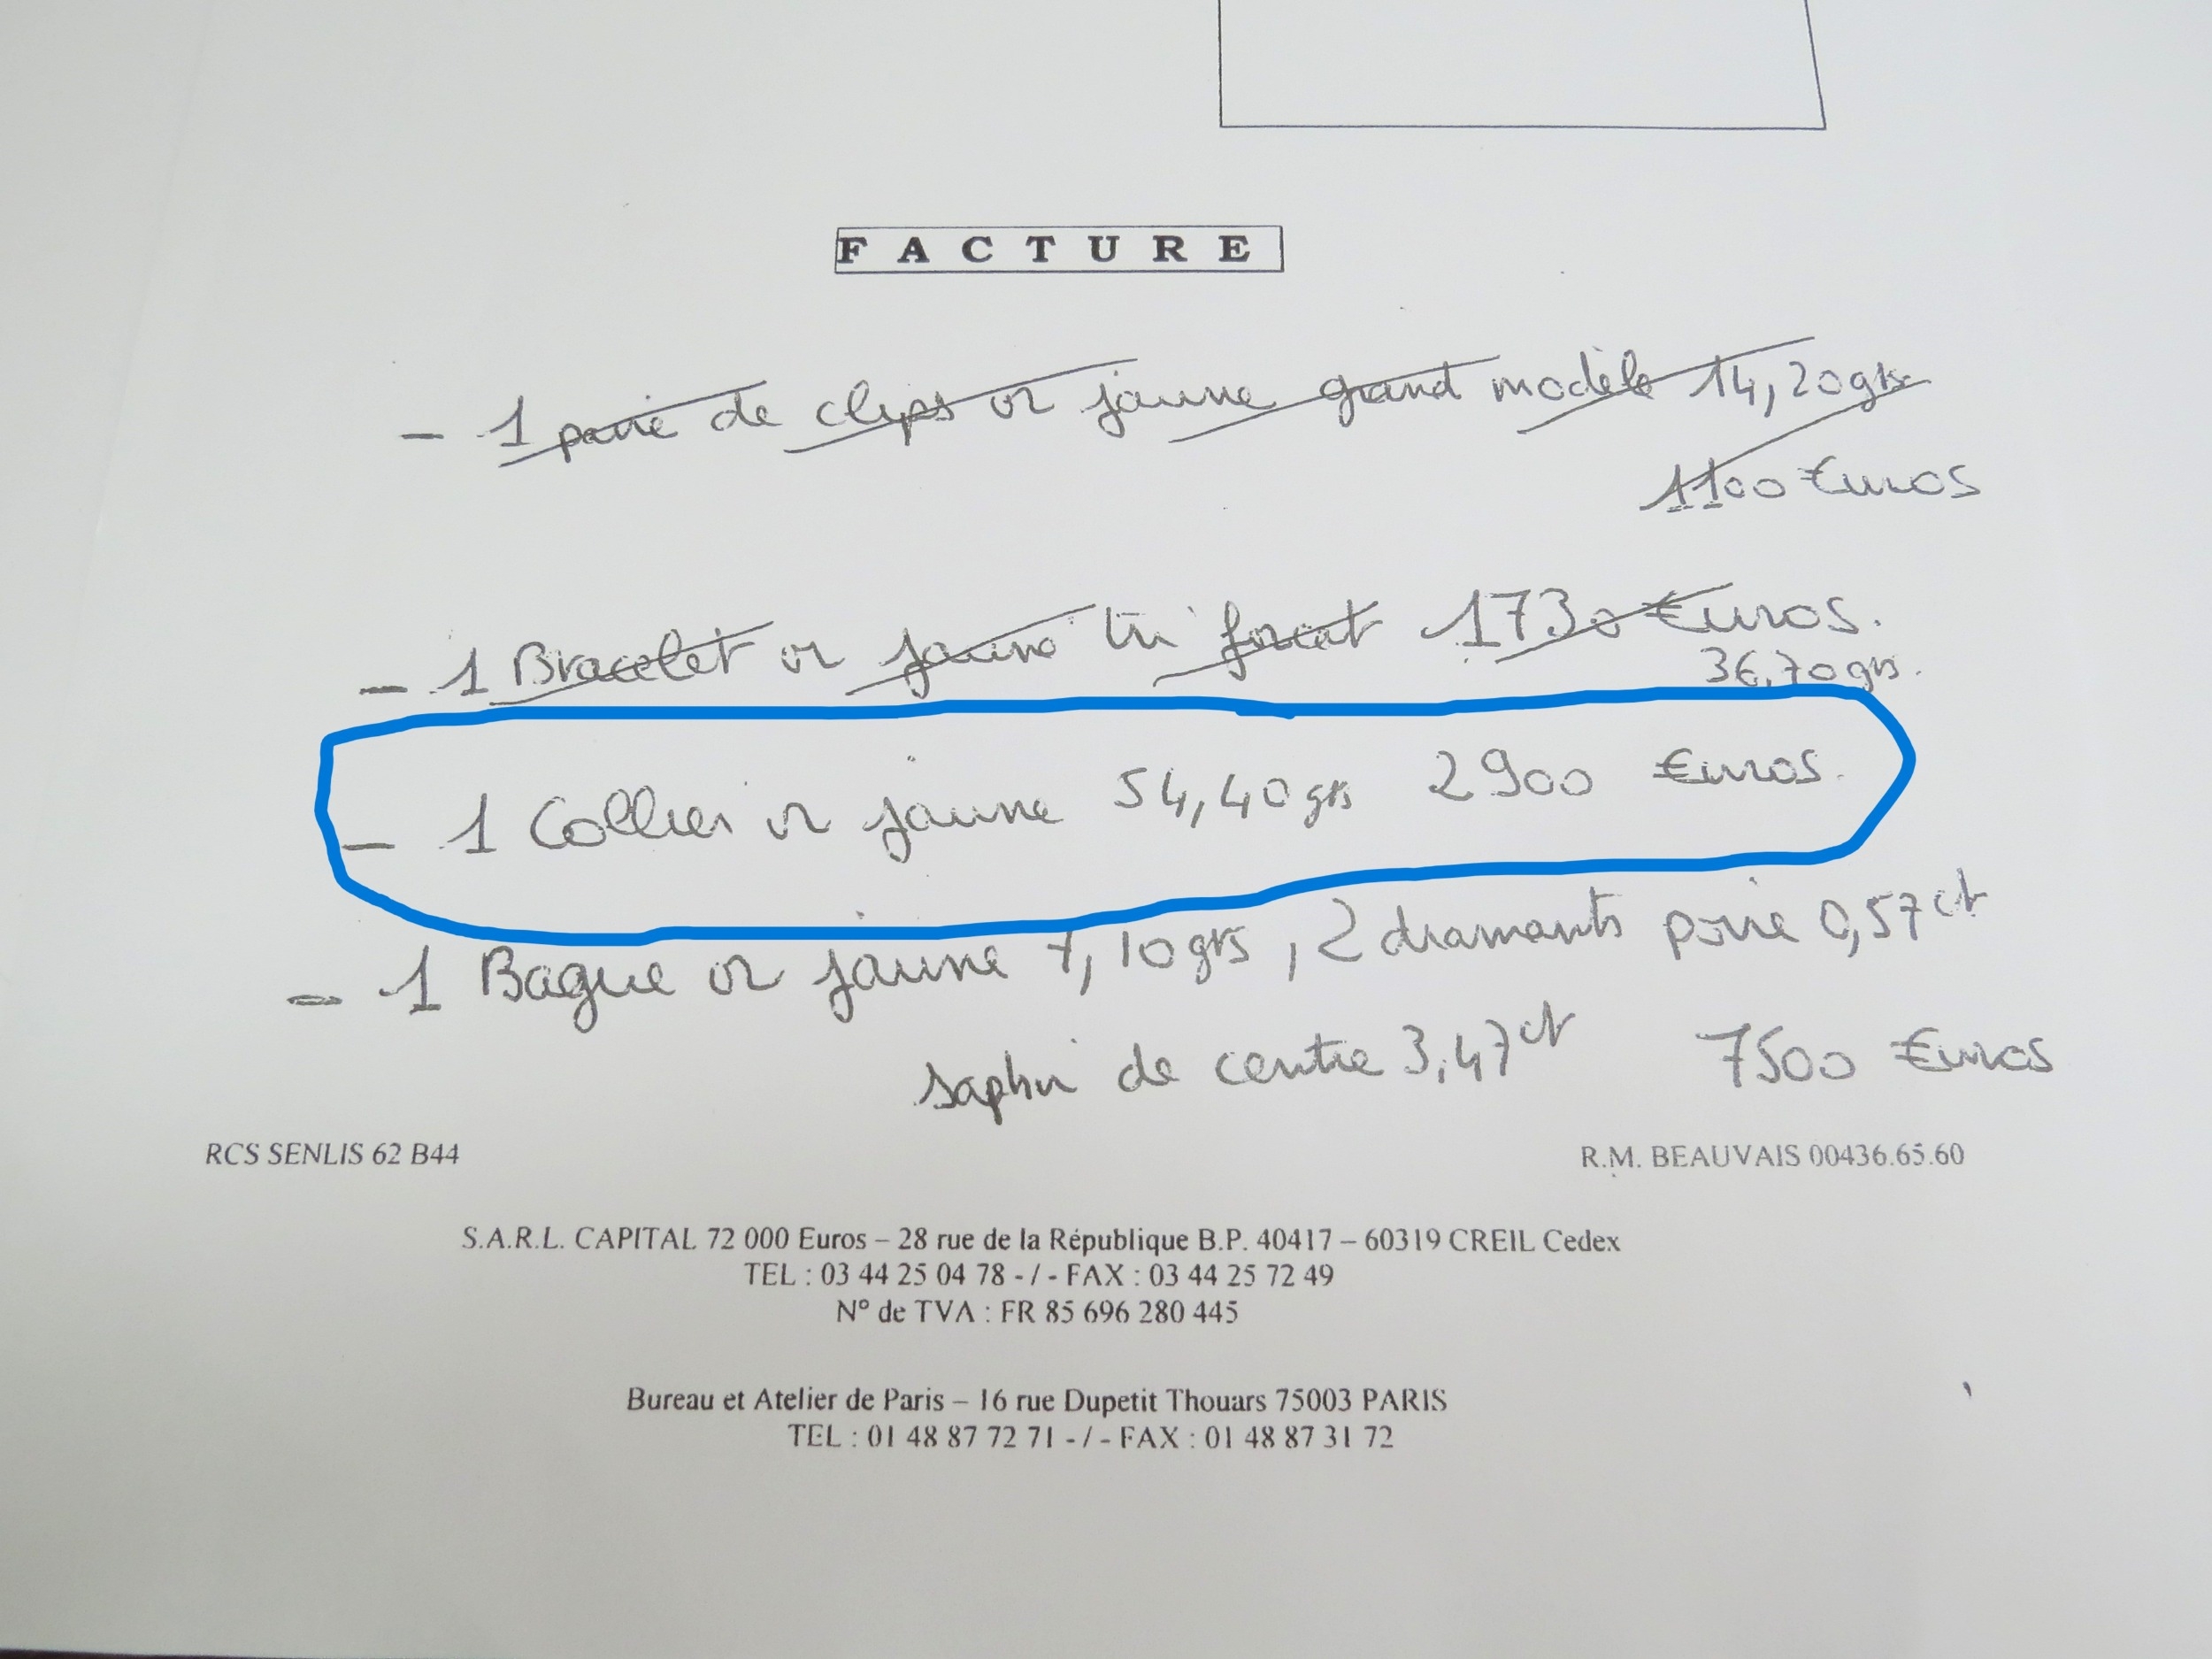 FACTURE
- 1 paire de clips or jaune grand modèle 14,20grs
1100 Euros
- 1 Bracelet or jaune tri forcat 1730 Euros.
36,70grs.
- 1 Collier or jaune 54,40grs 2900 Euros.
- 1 Bague or jaune 7,10grs, 2 diamants poire 0,57ct
saphir de centre 3,47ct 7500 Euros
RCS SENLIS 62 B44 R.M. BEAUVAIS 00436.65.60
S.A.R.L. CAPITAL 72 000 Euros – 28 rue de la République B.P. 40417 – 60319 CREIL Cedex
TEL : 03 44 25 04 78 - / - FAX : 03 44 25 72 49
N° de TVA : FR 85 696 280 445
Bureau et Atelier de Paris – 16 rue Dupetit Thouars 75003 PARIS
TEL : 01 48 87 72 71 - / - FAX : 01 48 87 31 72